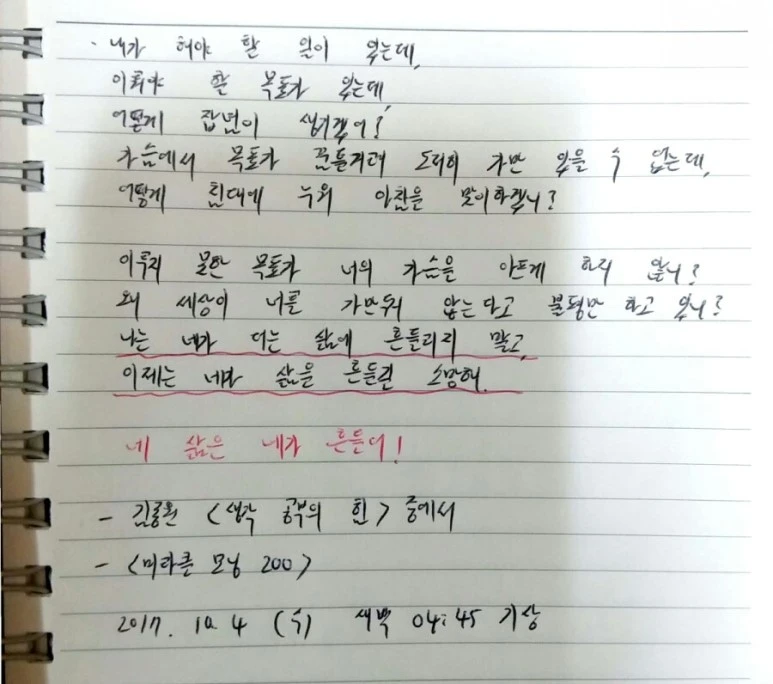 · 내가 해야 할 일이 있는데,
이뤄야 할 목표가 있는데,
어떻게 잡념이 생기겠어?
가슴에서 목표가 꿈틀거려 도저히 가만 있을 수 없는데,
어떻게 침대에 누워 아침을 맞이하겠니?
이루지 못한 목표가 너의 가슴을 아프게 하지 않니?
왜 세상이 너를 가만둬 않는다고 불평만 하고 있니?
나는 네가 더는 삶에 흔들리지 말고,
이제는 네가 삶을 흔들길 소망해.
네 삶은 네가 흔들어!
- 김종원 <생각 공부의 힘> 중에서
- <미라클 모닝 200>
2017. 10. 4 (수) 새벽 04:45 기상